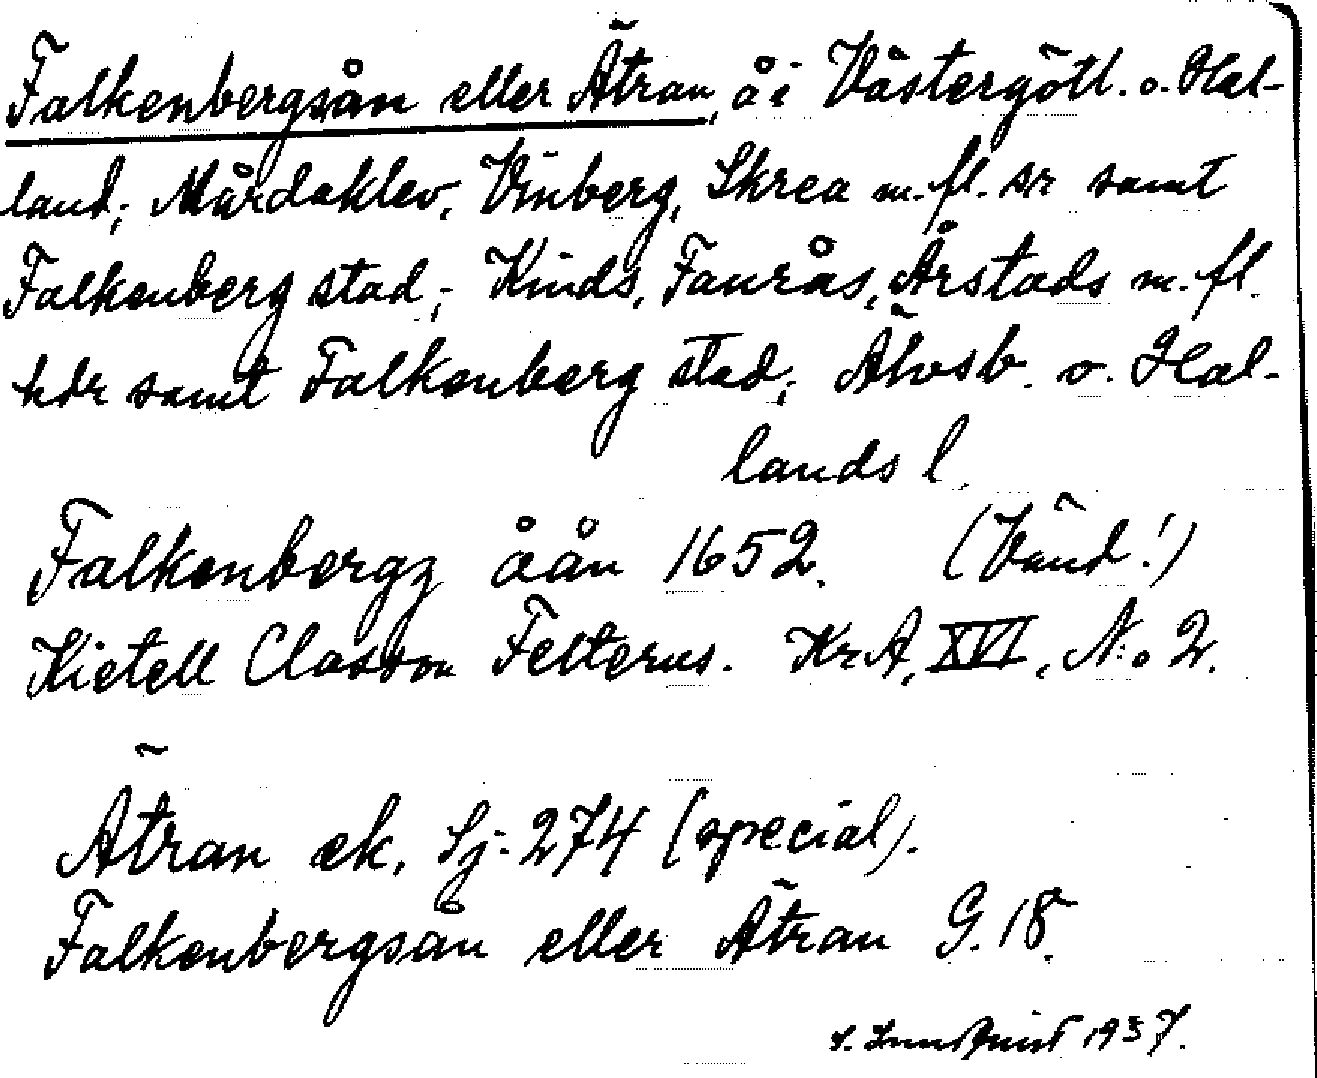 Falkenbergsån eller Ätran, å i Västergötl. o. Hal-
land; Mårdaklev, Vinberg, Skrea m.fl. sr samt
Falkenberg stad; Kinds, Faurås, Årstads m.fl.
hdr samt Falkenberg stad; Älvsb. o. Hal-
lands l.
Falkenbergz åån 1652. (Vänd!)
Kietell Classon Felterus. KrA, XVI, N:o 2.
Ätran ek. Sj. 274 (special).
Falkenbergsån eller Ätran G. 18.
1937.